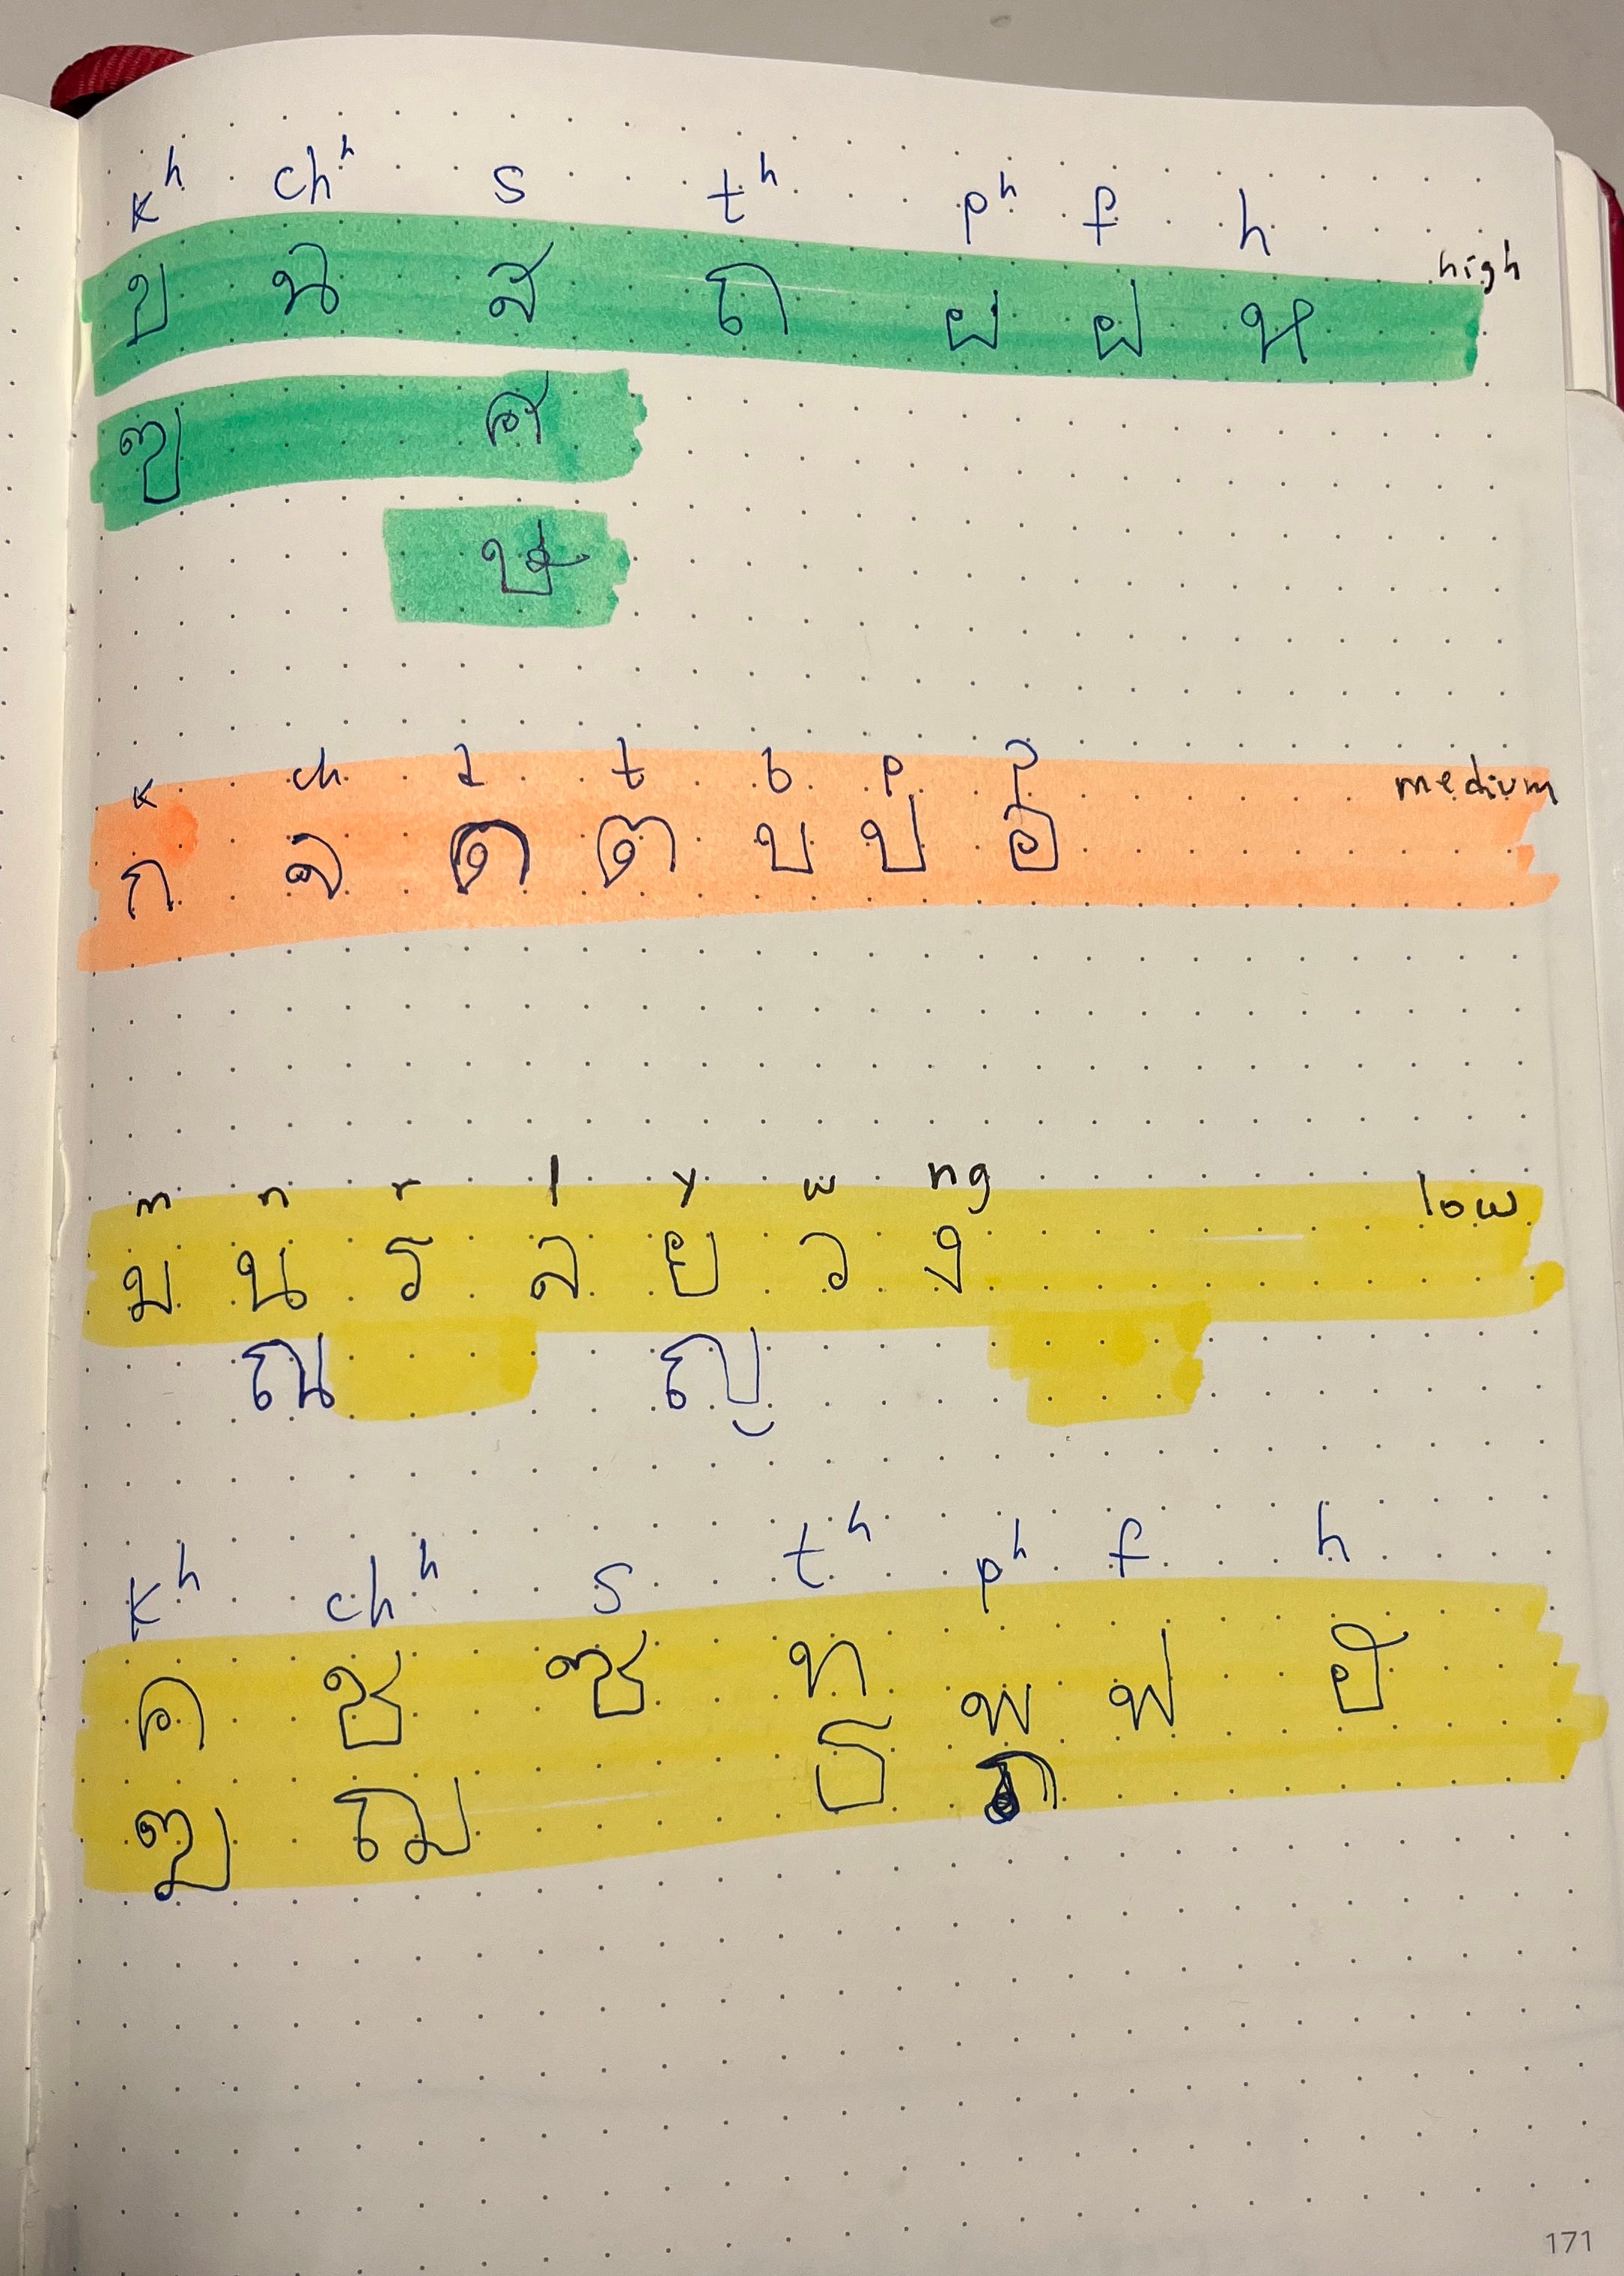 kʰ chʰ s tʰ pʰ f h
high
ข ฉ ส ถ ผ ฝ ห
ฃ ศ
ษ
k ch d t b p ʔ
medium
ก จ ด ต บ ป อ
m n r l y w ng
low
ม น ร ล ย ว ง
ณ ญ
kʰ chʰ s tʰ pʰ f h
ค ช ซ ท พ ฟ ฮ
ฅ ฌ ธ ภ
171